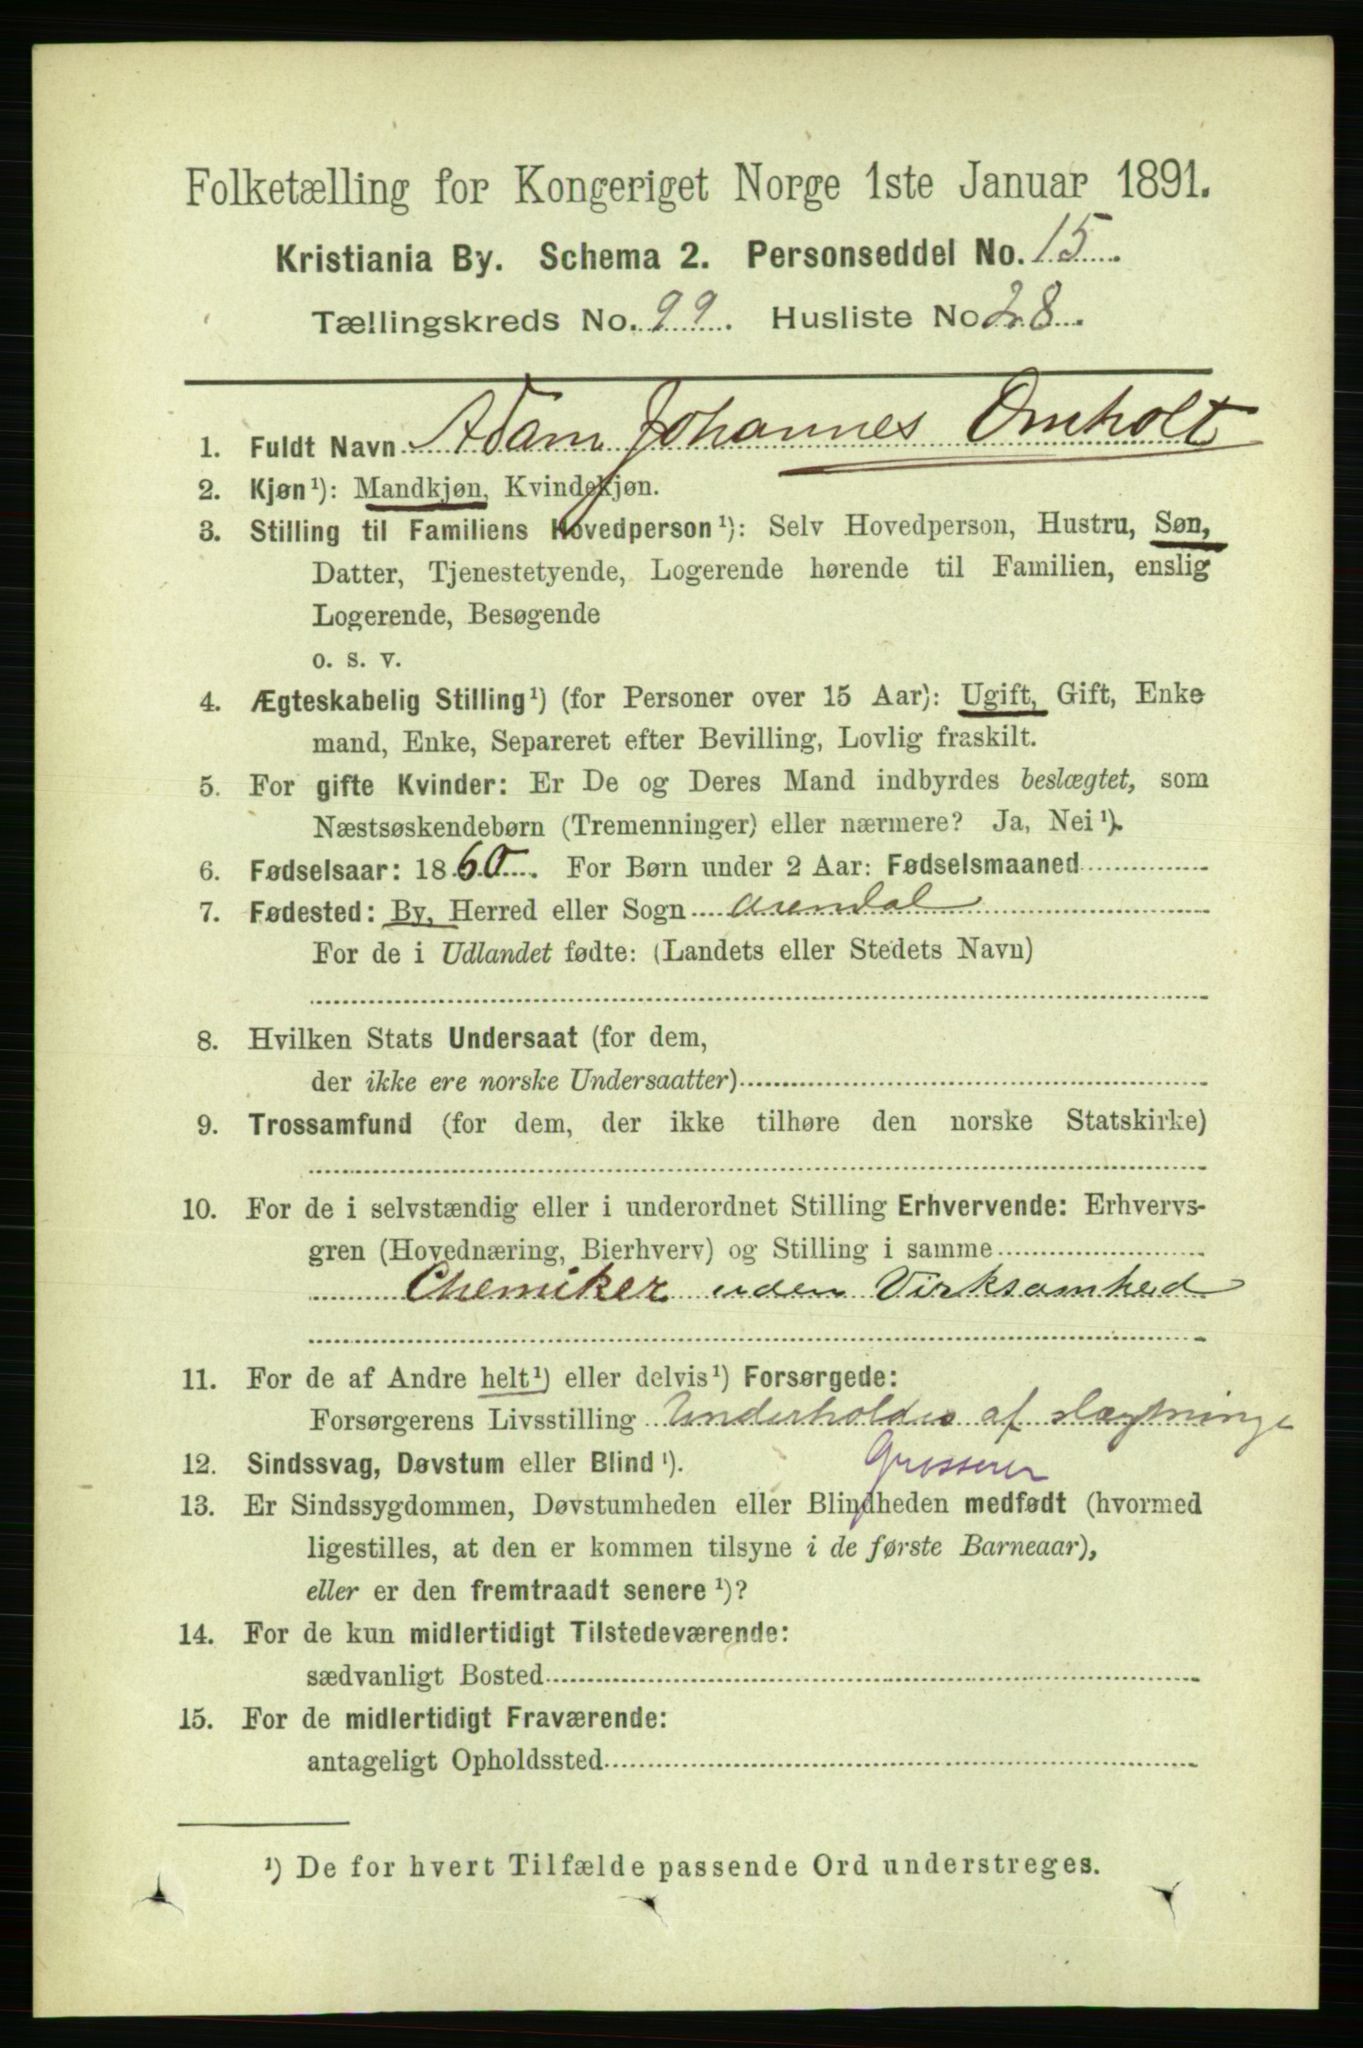 Folketælling for Kongeriget Norge 1ste Januar 1891.
Kristiania By. Schema 2. Personseddel No. 15.
Tællingskreds No. 99. Husliste No 28.
1. Fuldt Navn Adam Johannes Omholt
2. Kjøn¹): Mandkjøn, Kvindekjøn.
3. Stilling til Familiens Hovedperson¹): Selv Hovedperson, Hustru, Søn,
Datter, Tjenestetyende, Logerende hørende til Familien, enslig
Logerende, Besøgende
o. s. v.
4. Ægteskabelig Stilling¹) (for Personer over 15 Aar): Ugift, Gift, Enke
mand, Enke, Separeret efter Bevilling, Lovlig fraskilt.
5. For gifte Kvinder: Er De og Deres Mand indbyrdes beslægtet, som
Næstsøskendebørn (Tremenninger) eller nærmere? Ja, Nei¹).
6. Fødselsaar: 1860. For Børn under 2 Aar: Fødselsmaaned
7. Fødested: By, Herred eller Sogn Arendal
For de i Udlandet fødte: (Landets eller Stedets Navn)
8. Hvilken Stats Undersaat (for dem,
der ikke ere norske Undersaatter)
9. Trossamfund (for dem, der ikke tilhøre den norske Statskirke)
10. For de i selvstændig eller i underordnet Stilling Erhvervende: Erhvervs-
gren (Hovednæring, Bierhverv) og Stilling i samme
Chemiker uden Virksomhed
11. For de af Andre helt¹) eller delvis¹) Forsørgede:
Forsørgerens Livsstilling Underholdes af slægtninge
Grosserer
12. Sindssvag, Døvstum eller Blind¹).
13. Er Sindssygdommen, Døvstumheden eller Blindheden medfødt (hvormed
ligestilles, at den er kommen tilsyne i de første Barneaar),
eller er den fremtraadt senere¹)?
14. For de kun midlertidigt Tilstedeværende:
sædvanligt Bosted
15. For de midlertidigt Fraværende:
antageligt Opholdssted
¹) De for hvert Tilfælde passende Ord understreges.